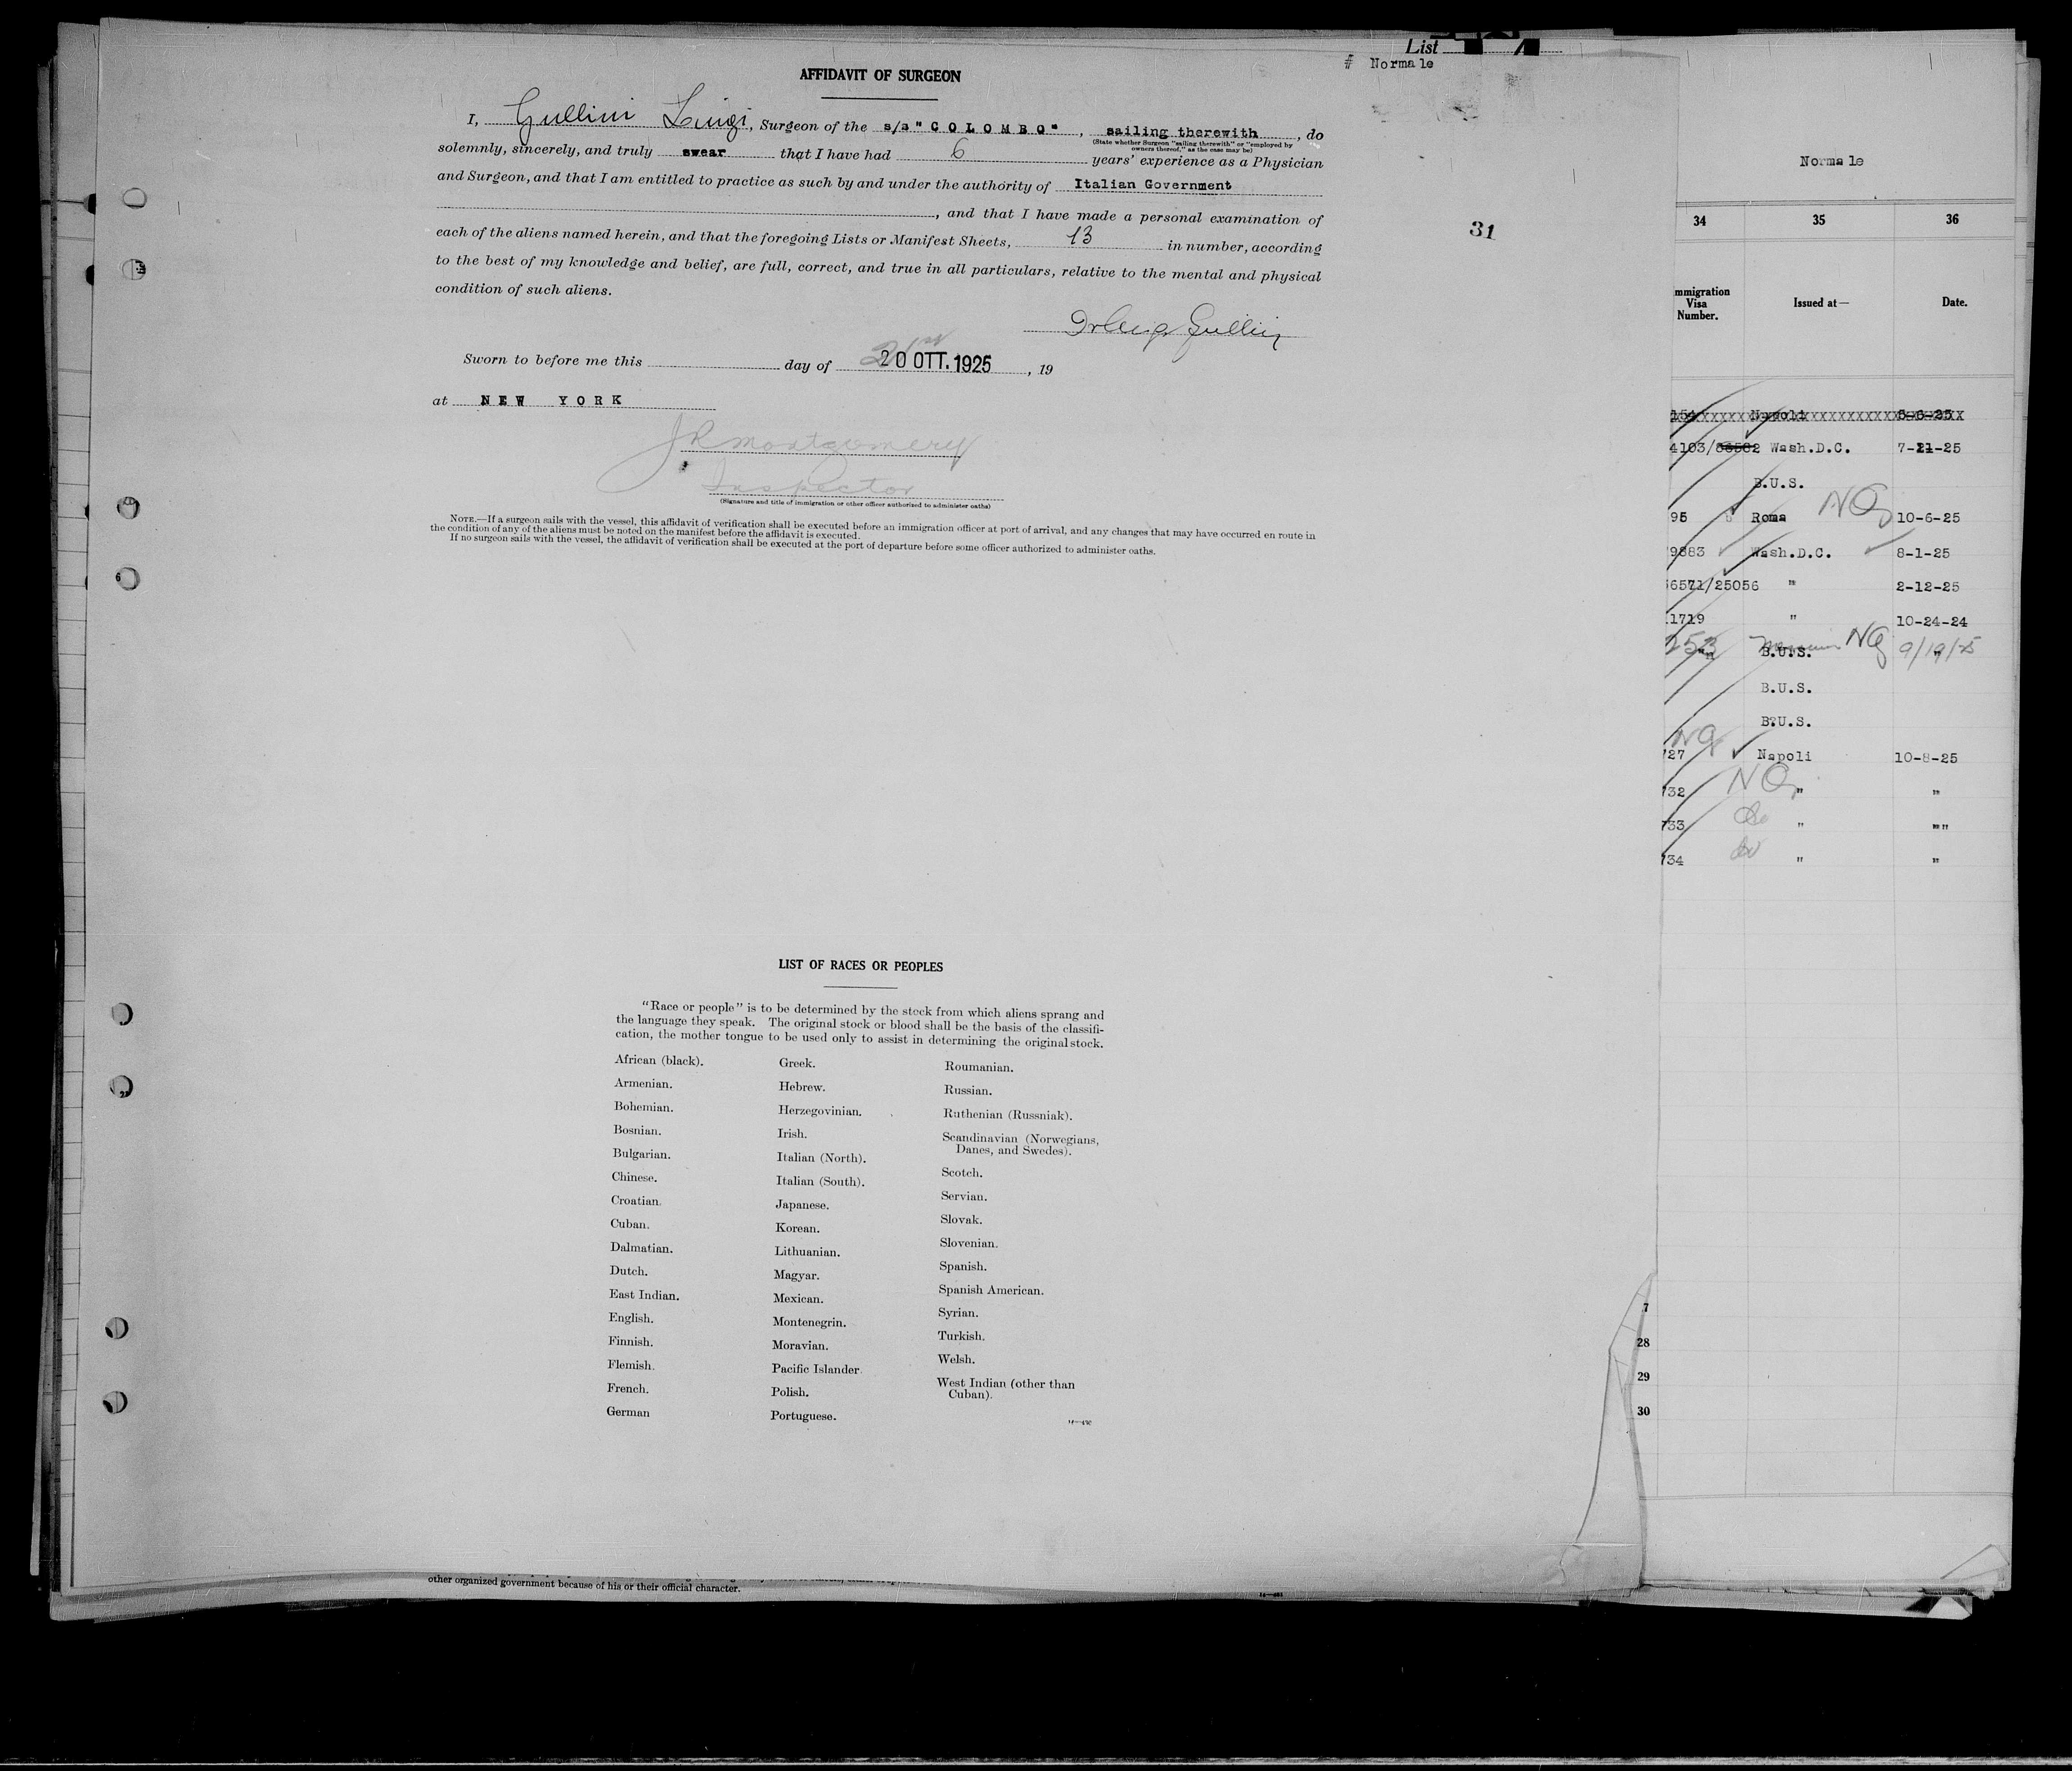 List
# Normale
AFFIDAVIT OF SURGEON
I, Gullini Luigi, Surgeon of the s/s "COLOMBO", sailing therewith, do
(State whether Surgeon "sailing therewith" or "employed by
owners thereof," as the case may be)
solemnly, sincerely, and truly swear that I have had 6 years' experience as a Physician
and Surgeon, and that I am entitled to practice as such by and under the authority of Italian Government
, and that I have made a personal examination of
each of the aliens named herein, and that the foregoing Lists or Manifest Sheets, 13 in number, according
to the best of my knowledge and belief, are full, correct, and true in all particulars, relative to the mental and physical
condition of such aliens.
31
Sworn to before me this day of 21st 20 OTT. 1925, 19
at NEW YORK
JR Montgomery
Inspector
(Signature and title of immigration or other officer authorized to administer oaths)
NOTE.—If a surgeon sails with the vessel, this affidavit of verification shall be executed before an immigration officer at port of arrival, and any changes that may have occurred en route in
the condition of any of the aliens must be noted on the manifest before the affidavit is executed.
If no surgeon sails with the vessel, the affidavit of verification shall be executed at the port of departure before some officer authorized to administer oaths.
LIST OF RACES OR PEOPLES
"Race or people" is to be determined by the stock from which aliens sprang and
the language they speak. The original stock or blood shall be the basis of the classifi-
cation, the mother tongue to be used only to assist in determining the original stock.
African (black).
Armenian.
Bohemian.
Bosnian.
Bulgarian.
Chinese.
Croatian.
Cuban.
Dalmatian.
Dutch.
East Indian.
English.
Finnish.
Flemish.
French.
German
Greek.
Hebrew.
Herzegovinian.
Irish.
Italian (North).
Italian (South).
Japanese.
Korean.
Lithuanian.
Magyar.
Mexican.
Montenegrin.
Moravian.
Pacific Islander.
Polish.
Portuguese.
Roumanian.
Russian.
Ruthenian (Russniak).
Scandinavian (Norwegians,
Danes, and Swedes).
Scotch.
Servian.
Slovak.
Slovenian.
Spanish.
Spanish American.
Syrian.
Turkish.
Welsh.
West Indian (other than
Cuban).
other organized government because of his or their official character.
Normale
34 35 36
mmigration
Visa
Number.
Issued at—
Date.
154 Napoli 6-6-25
4103/ Wash.D.C. 7-21-25
B.U.S.
95 Roma NQ 10-6-25
9883 Wash.D.C. 8-1-25
6571/25056 " 2-12-25
1719 " 10-24-24
253 B.U.S. NQ 9/19/25
B.U.S.
B.U.S.
NQ
27 Napoli 10-8-25
732 NQ " "
733 do " ""
734 do " "
7
28
29
30